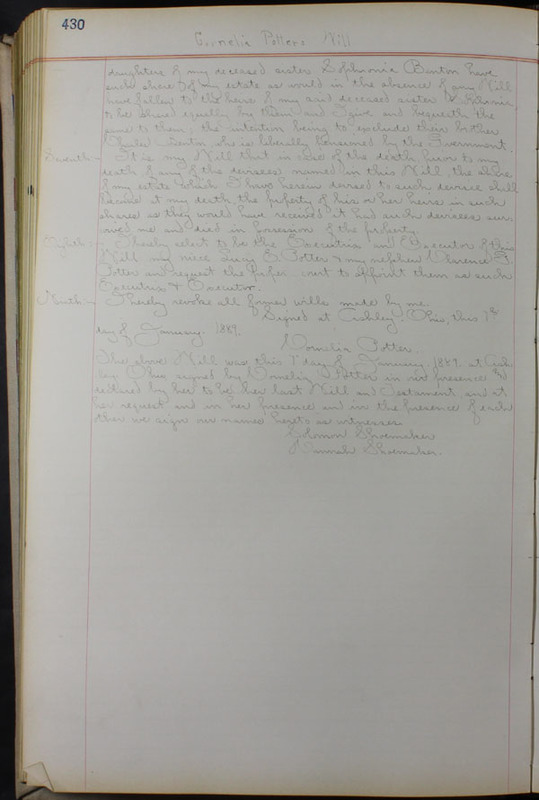 430
Cornelia Potters Will
daughters of my deceased sister Sophronia Benton have
such share of my estate as would in the absence of any Will
have fallen to the heirs of my said deceased sister Sophronia
to be shared equally by them and I give and bequeath the
same to them, the intention being to exclude their brother
Charles Benton who is liberally pensioned by the Government.
Seventh:- It is my Will that in case of the death prior to my
death of any of the devisees named in this Will, the share
of my estate which I have herein devised to such devisee shall
become at my death, the property of his or her heirs in such
shares as they would have received it had such devisees sur-
vived me and died in possession of the property.
Eighth:- I hereby elect to be the Executrix and Executor of this
Will my niece E. Potter & my nephew Clarence
Potter and request the proper court to appoint them as such
Executrix & Executor.
Ninth:- I hereby revoke all former wills made by me.
Signed at Ashley, Ohio, this 7th
day of January 1889.
Cornelia Potter
The above Will was this 7 day of January 1889. at Ash-
ley Ohio signed by Cornelia Potter in our presence and
declared by her to be her last Will and Testament and at
her request and in her presence and in the presence of each
other we sign our names hereto as witnesses.
Solomon Shoemaker
Hannah Shoemaker.